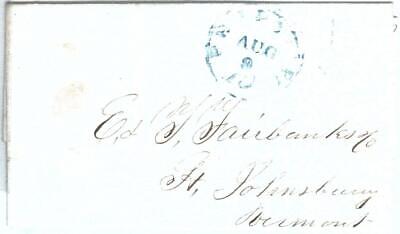 AUG
9
E & T. Fairbanks & Co
St. Johnsbury
Vermont